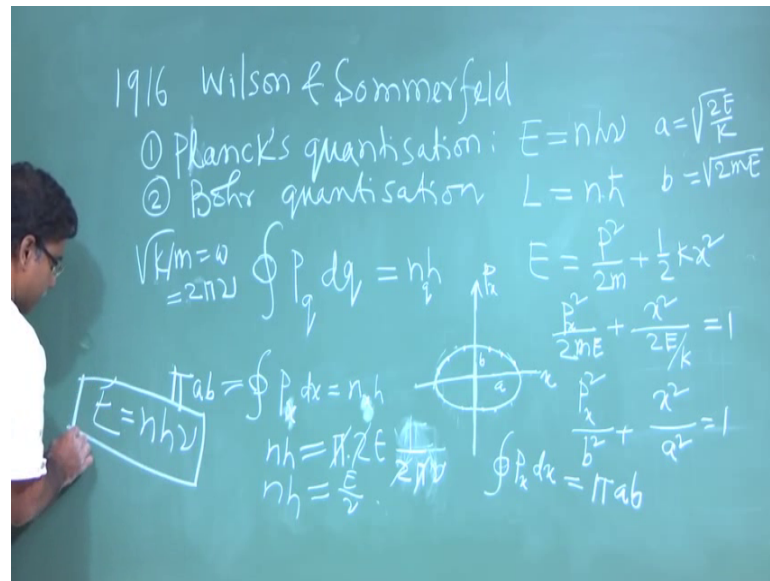 1916 Wilson & Sommerfeld
① Planck's quantisation: E = nhν a = √(2E/K)
② Bohr quantisation L = nħ b = √(2mE)
√(k/m) = ω
= 2πν
∮ P_q dq = n_q h
E = P²/2m + ½ kx²
P_x
P_x²/2mE + x²/(2E/k) = 1
b
a
x
πab = ∮ P_x dx = n_x h
P_x²/b² + x²/a² = 1
E = nhν
nh = π·2E 1/2πν
∮ P_x dx = πab
nh = E/ν.